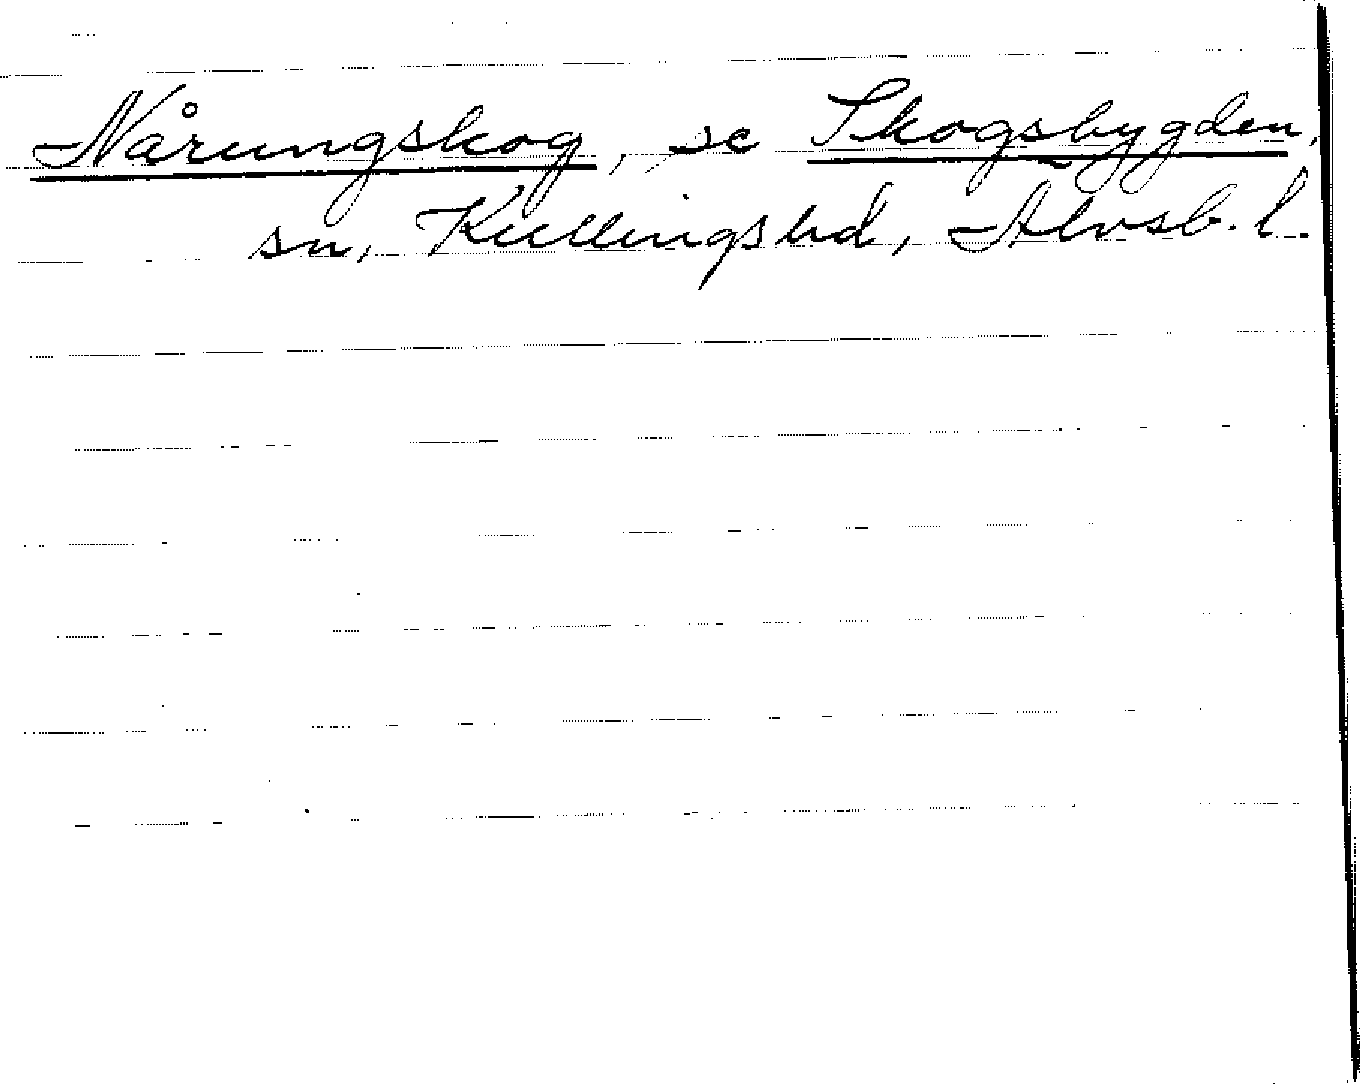 Nårungskog, se Skogsbygden,
sn, Kullings hd, Älvsb. l.